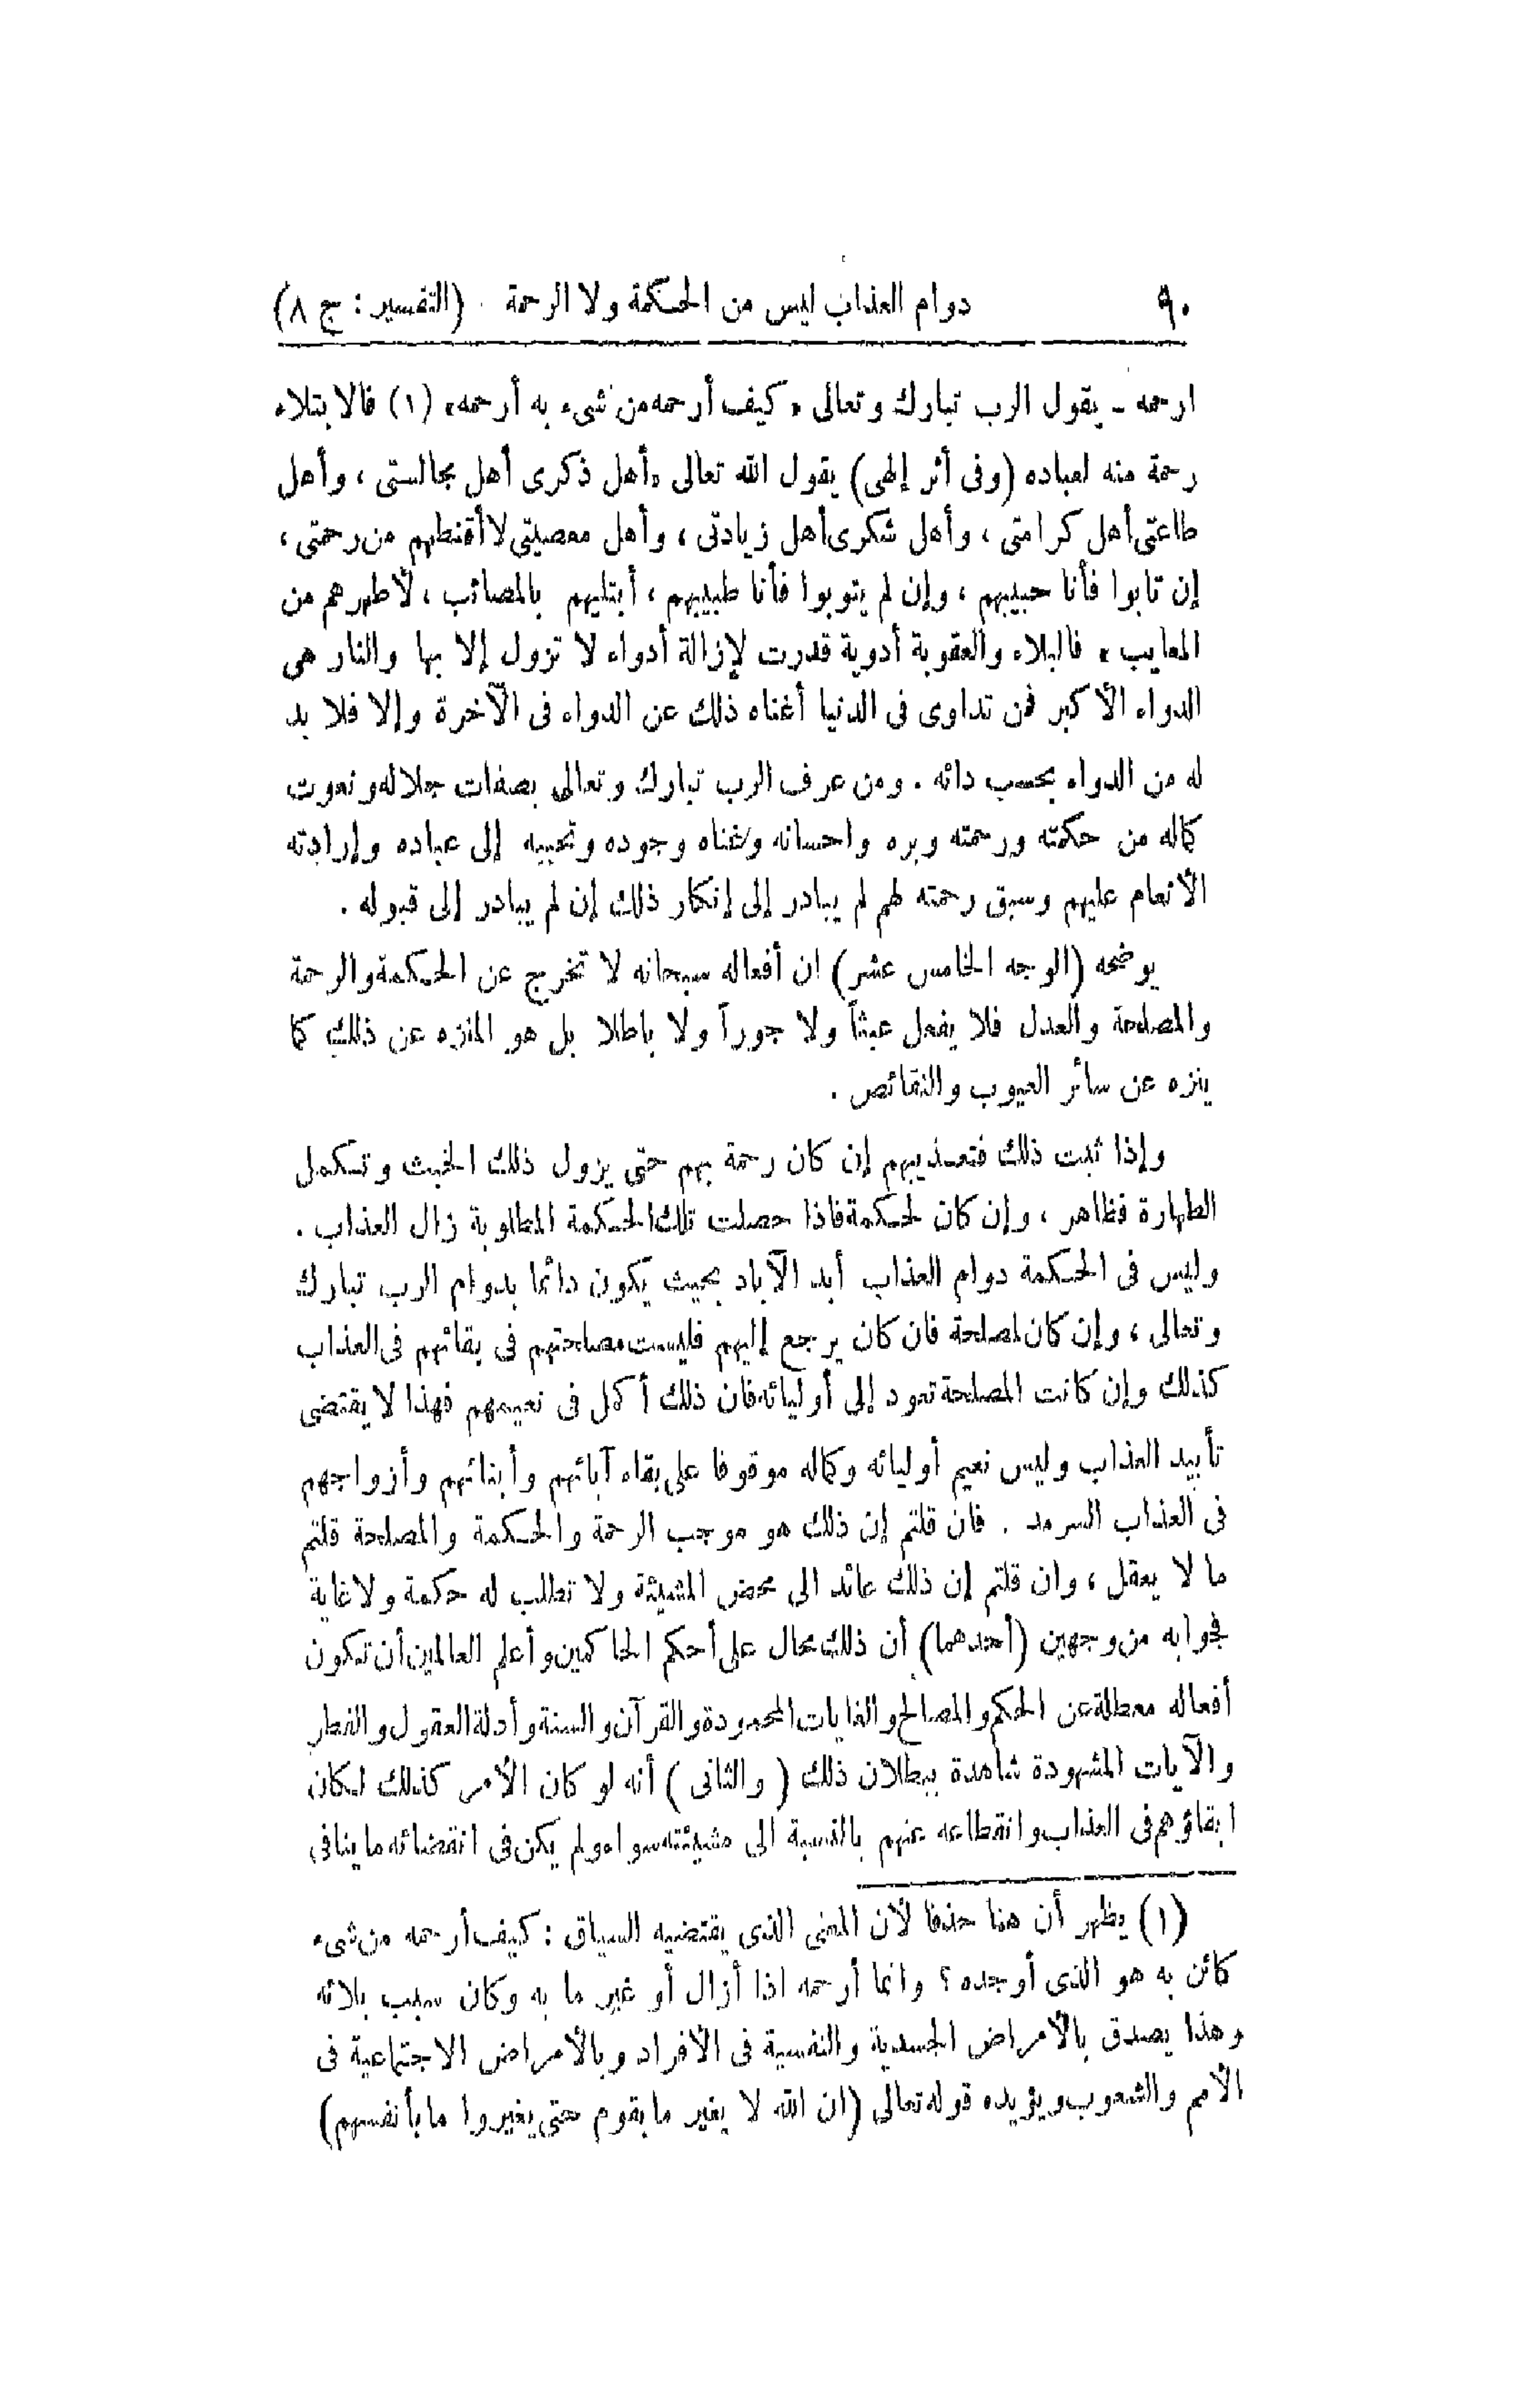 ٩٠ دوام العذاب ليس من الحكمة ولا الرحمة (التفسير : ج ٨)
ارحمه ـ يقول الرب تبارك وتعالى « كيف أرحمه من شىء به أرحمه» (١) فالابتلاء
رحمة منه لعباده (وفى أثر إلهى) يقول الله تعالى «أهل ذكرى أهل مجالستى ، وأهل
طاعتى أهل كرامتى ، وأهل شكرى أهل زيادتى ، وأهل معصيتى لا أقنطهم من رحمتى ،
إن تابوا فأنا حبيبهم ، وإن لم يتوبوا فأنا طبيبهم ، أبتليهم بالمصائب ، لأطهرهم من
المعايب » فالبلاء والعقوبة أدوية قدرت لإزالة أدواء لا تزول إلا بها والنار هى
الدواء الأكبر فمن تداوى فى الدنيا أغناه ذلك عن الدواء فى الآخرة وإلا فلا بد
له من الدواء بحسب دائه . ومن عرف الرب تبارك وتعالى بصفات جلاله ونعوت
كماله من حكمته ورحمته وبره واحسانه وغناه وجوده وتحببه إلى عباده وإرادته
الأنعام عليهم وسبق رحمته لهم لم يبادر إلى إنكار ذلك إن لم يبادر إلى قبوله .
يوضحه (الوجه الخامس عشر) ان أفعاله سبحانه لا تخرج عن الحكمة والرحمة
والمصلحة والعدل فلا يفعل عبثاً ولا جوراً ولا باطلا بل هو المنزه عن ذلك كما
ينزه عن سائر العيوب والنقائص .
وإذا ثبت ذلك فتعذيبهم إن كان رحمة بهم حتى يزول ذلك الخبث وتكمل
الطهارة فظاهر ، وإن كان لحكمة فاذا حصلت تلك الحكمة المطلوبة زال العذاب .
وليس فى الحكمة دوام العذاب أبد الآباد بحيث يكون دائما بدوام الرب تبارك
وتعالى ، وإن كان لمصلحة فان كان يرجع إليهم فليست مصلحتهم فى بقائهم فى العذاب
كذلك وإن كانت المصلحة تعود إلى أوليائه فان ذلك أكمل فى نعيمهم فهذا لا يقتضى
تأبيد العذاب وليس نعيم أوليائه وكماله موقوفا على بقاء آبائهم وأبنائهم وأزواجهم
فى العذاب السرمد . فان قلتم إن ذلك هو موجب الرحمة والحكمة والمصلحة قلتم
ما لا يعقل ، وان قلتم إن ذلك عائد الى محض المشيئة ولا تطلب له حكمة ولا غاية
فجوابه من وجهين (أحدهما) أن ذلك محال على أحكم الحاكمين وأعلم العالمين أن تكون
أفعاله معطلة عن الحكم والمصالح والغايات المحمودة والقرآن والسنة وأدلة العقول والفطر
والآيات المشهودة شاهدة ببطلان ذلك (والثانى) أنه لو كان الأمر كذلك لكان
ابقاؤهم فى العذاب وانقطاعه عنهم بالنسبة الى مشيئته سواء ولم يكن فى انقضائه ما ينافى
(١) يظهر أن هنا حذفا لأن المعنى الذى يقتضيه السياق : كيف أرحمه من شىء
كائن به هو الذى أوجده ؟ وانما أرحمه اذا أزال أو غير ما به وكان سبب بلائه
وهذا يصدق بالأمراض الجسدية والنفسية فى الأفراد وبالأمراض الاجتماعية فى
الأمم والشعوب ويؤيده قوله تعالى (ان الله لا يغير ما بقوم حتى يغيروا ما بأنفسهم)